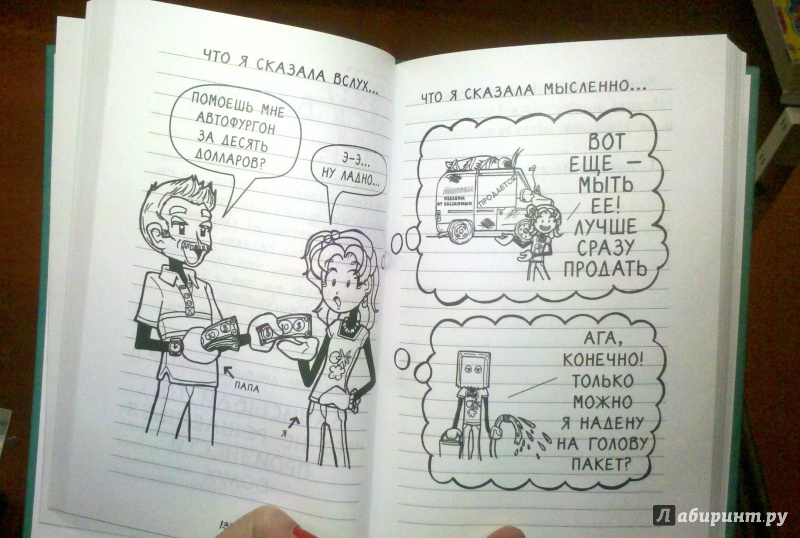 ЧТО Я СКАЗАЛА ВСЛУХ...
ПОМОЕШЬ МНЕ
АВТОФУРГОН
ЗА ДЕСЯТЬ
ДОЛЛАРОВ?
Э-Э...
НУ ЛАДНО...
ПАПА
Я
ЧТО Я СКАЗАЛА МЫСЛЕННО...
ВОТ
ЕЩЕ —
МЫТЬ
ЕЕ!
ЛУЧШЕ
СРАЗУ
ПРОДАТЬ
ПРОДАЕТСЯ
ИЗБАВИМ
ОТ НАСЕКОМЫХ
АГА,
КОНЕЧНО!
ТОЛЬКО
МОЖНО
Я НАДЕНУ
НА ГОЛОВУ
ПАКЕТ?
Лабиринт.ру